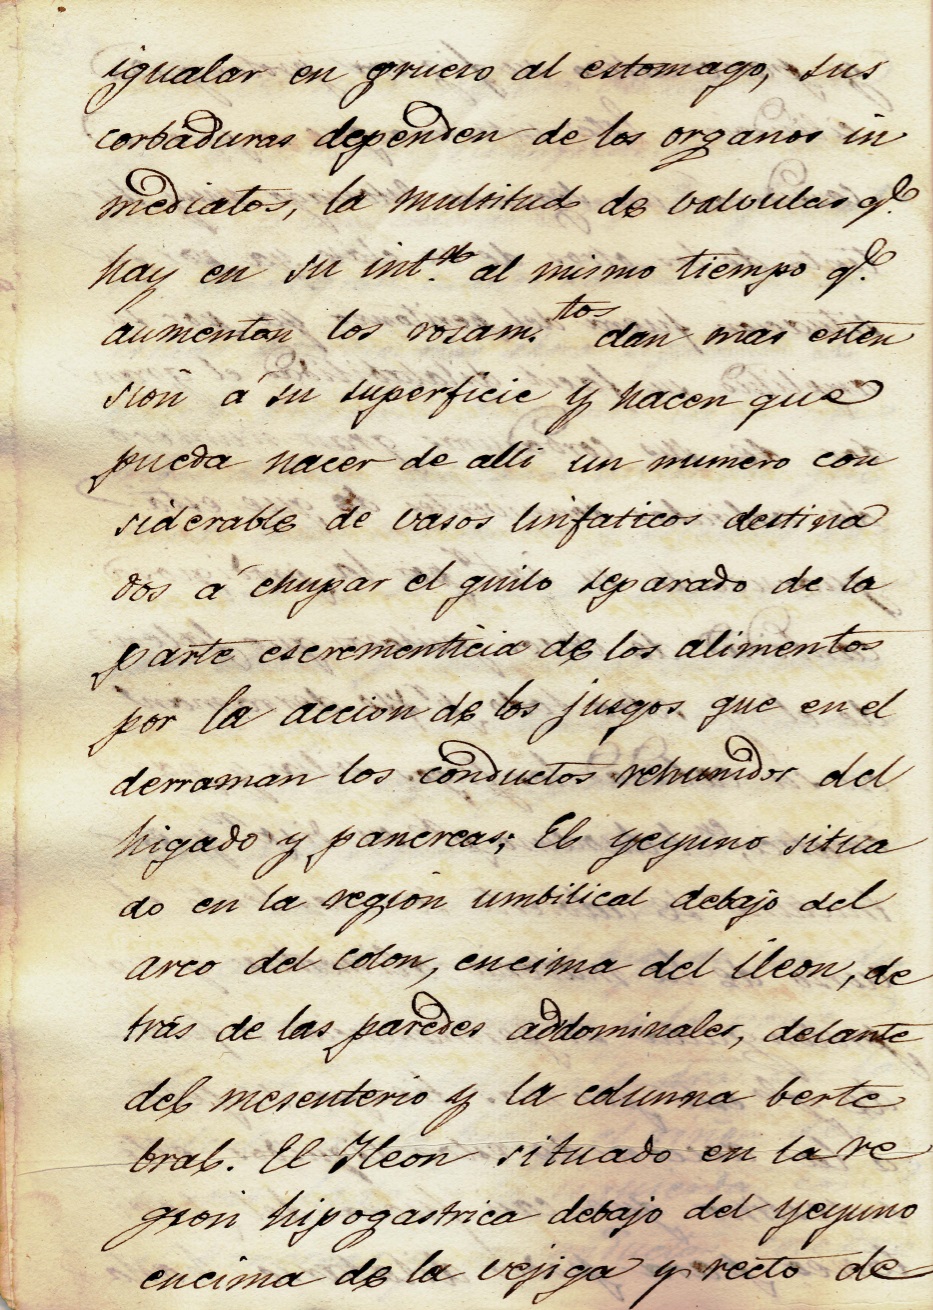 igualar en grueso al estomago, sus
corbaduras dependen de los organos in
mediatos, la multitud de valvulas q.e
hay en su int.or al mismo tiempo q.e
aumentan los rosam.tos dan mas esten
sion á su superficie y hacen que
pueda nacer de alli un numero con
siderable de vasos linfaticos destina
dos á chupar el quilo separado de la
parte escrementicia de los alimentos
por la accion de los jusgos que en el
derraman los conductos rehunidos del
higado y pancreas; El yeyuno situa
do en la region umbilical debajo del
arco del colon, encima del ileon, de
trás de las paredes addominales, delante
del mesenterio y la columna berte
bral. El Ileon situado en la re
gion hipogastrica debajo del yeyuno
encima de la vejiga y recto de